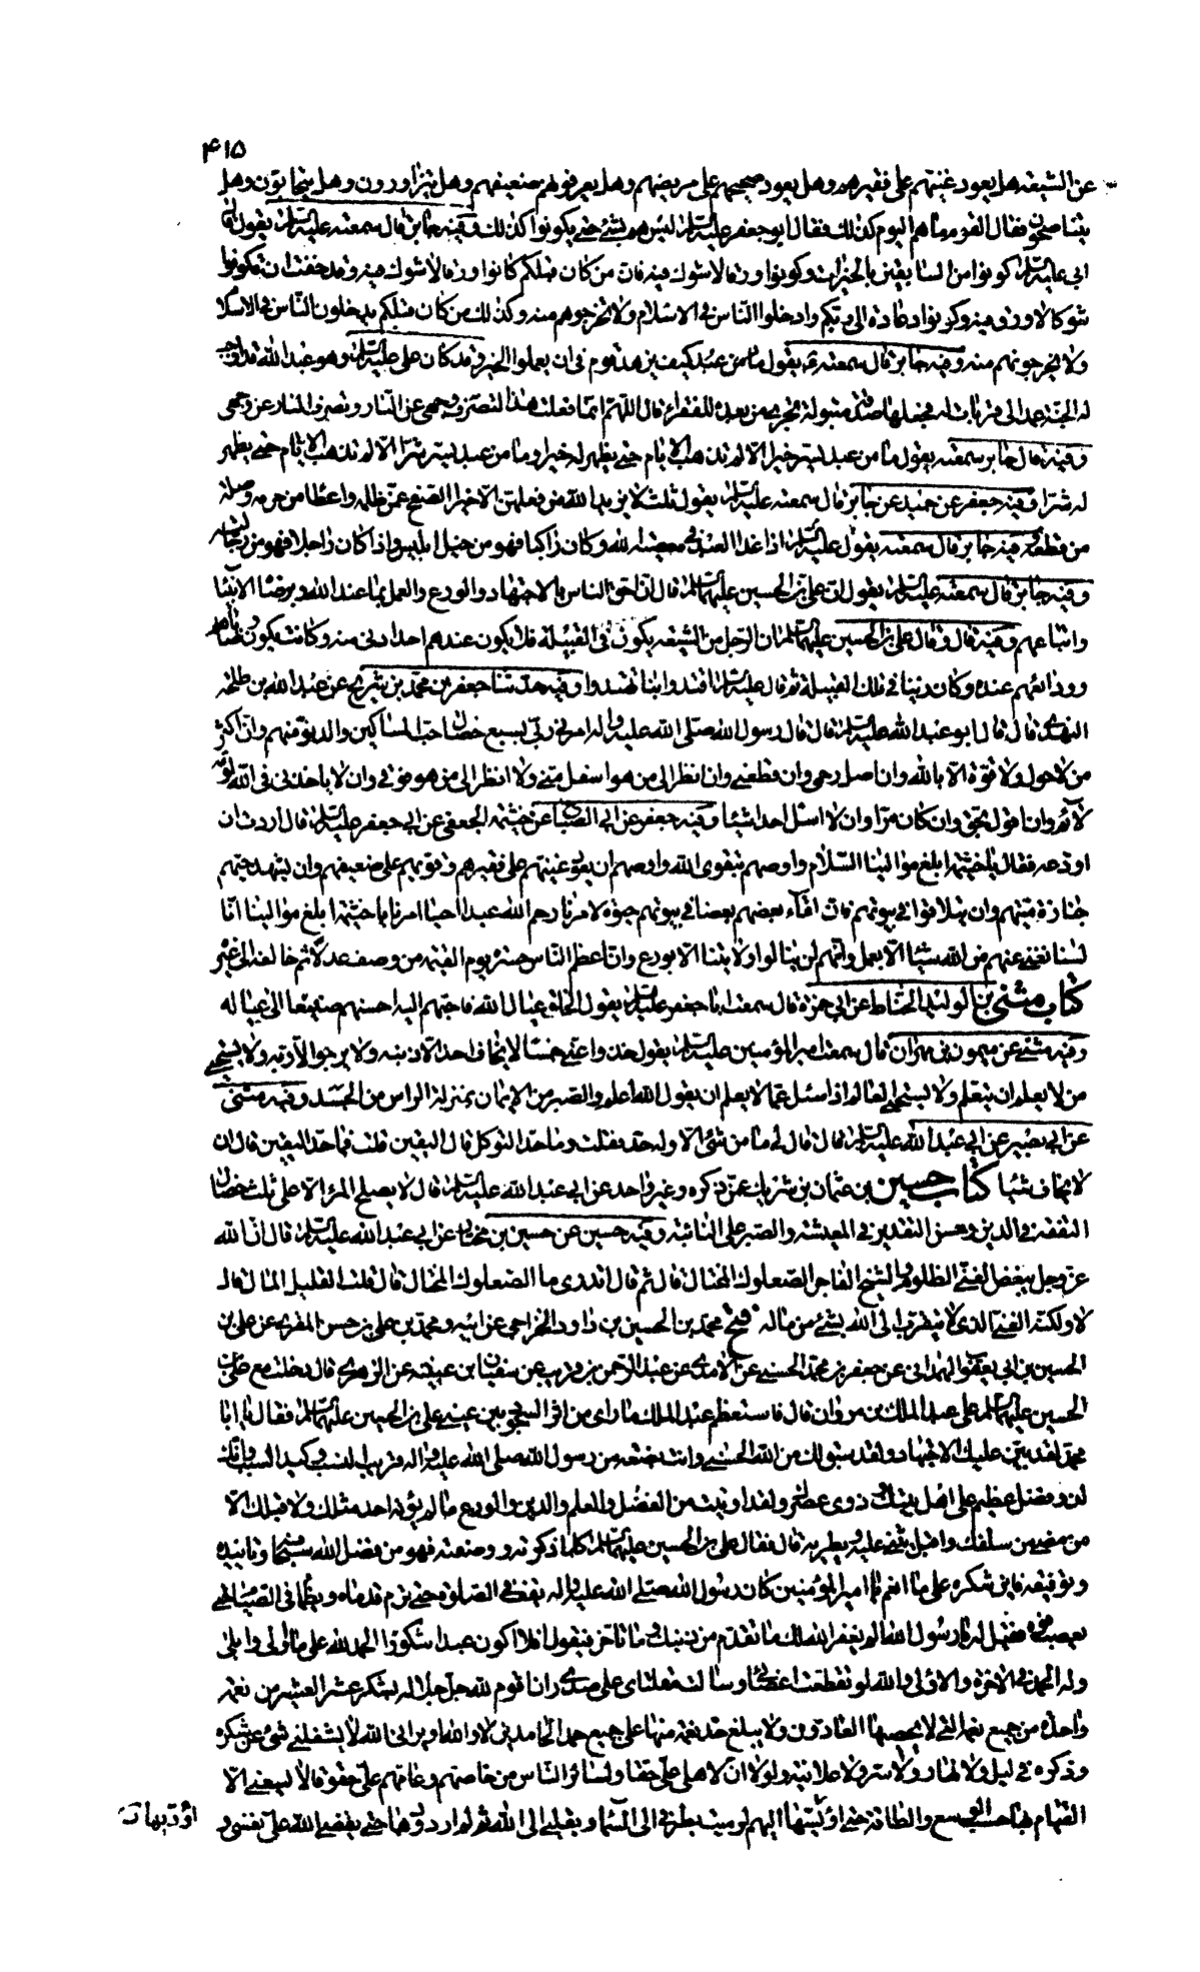 ۴۱۵
عن الشيعة هل يعود غنيهم على فقيرهم وهل يعود صحيحهم على مريضهم وهل يعرفون لهم ضعيفهم وهل يتزاورون وهل يتحابون وهل
يتناصحون فقال القوم ما هم اليوم كذلك فقال ابو جعفر عليه السلام ليس هم بشئ حتى يكونوا كذلك وفيه جابر قال سمعته عليه السلام يقول قال
ابى عليه السلام كونوا من السابقين بالخيرات وكونوا ورقا لا شوك فيه فان من كان قبلكم كانوا ورقا لا شوك فيه وقد خفت ان تكونوا
شوكا لا ورق فيه وكونوا دعاة الى ربكم وادخلوا الناس فى الاسلام ولا تخرجوهم منه وكذلك من كان قبلكم يدخلون الناس فى الاسلام
ولا يخرجونهم منه وفيه جابر قال سمعته يقول كيف يزهد قوم فى ان يعملوا الخير وقد كان على عليه السلام وهو عبد الله قد اوجب
له الجنة عمد الى قربات له فجعلها صدقة مبتولة تجرى من بعده للفقراء قال اللهم انما فعلت هذا لتصرف وجهى عن النار وتصرف النار عن وجهى
وفيه قال جابر سمعته يقول ما من عبد يسر خيرا الا لم تذهب الايام حتى يظهر له خيرا وما من عبد يسر شرا الا لم تذهب الايام حتى يظهر
له شرا وفيه جعفر عن حميد عن جابر قال سمعته عليه السلام يقول ثلث لا يزيد الله من فعلهن الا خيرا الصفح عمن ظلمه واعطا من حرمه وصلة
من قطعه فيه جابر قال سمعته يقول عليه السلام اذا غدا العبد فى معصية لله وكان راكبا فهو من خيل ابليس واذا كان راجلا فهو من رجالته
وفيه جابر قال سمعته عليه السلام يقول ان على بن الحسين عليهما السلام قال ان احق الناس بالاجتهاد والورع والعمل بما عند الله ويرضى الانبياء
واتباعهم وفيه قال وقال على بن الحسين عليهما السلام ان الرجل من الشيعة يكون فى القبيلة فلا يكون عندهم احد ادنى منه وكانت يكون
وودائعهم عنده وكان دنيا فى تلك القبيلة ثم قال عليه السلام اقتدوا بنا تهتدوا وفيه حدثنا جعفر بن محمد بن شريح عن عبد الله بن طلحة
النهدى قال قال ابو عبد الله عليه السلام قال قال رسول الله صلى الله عليه واله امرنى ربى بسبع خصال حب المساكين والدنو منهم وان اكثر
من لا حول ولا قوة الا بالله وان اصل رحمى وان قطعنى وان انظر الى من هو اسفل منى ولا انظر الى من هو فوقى وان لا ياخذنى فى الله لومة
لائم وان اقول الحق وان كان مرا وان لا اسئل احدا شيئا وفيه جعفر عن ابى الصباح عن خيثمة الجعفى عن ابى جعفر عليه السلام قال اردت ان
اودعه فقال يا خيثمة ابلغ موالينا السلام واوصهم بتقوى الله واوصهم ان يعود غنيهم على فقيرهم وقويهم على ضعيفهم وان يشهد حيهم
جنازة ميتهم وان يتلاقوا فى بيوتهم فان لقاء بعضهم بعضا فى بيوتهم حيوة لامرنا رحم الله عبدا احيا امرنا يا خيثمة ابلغ موالينا انا
لسنا نغنى عنهم من الله شيئا الا بعمل وانهم لن ينالوا ولايتنا الا بورع وان اعظم الناس حسرة يوم القيمة من وصف عدلا ثم خالفه الى غيره
كتاب مثنى بن الوليد الحناط عن ابى حمزة قال سمعت ابا جعفر عليه السلام يقول الخلق عيال الله فاحبهم اليه احسنهم صنيعا الى عياله
وفيه مثنى عن ميمون بن مهران قال سمعت امير المؤمنين عليه السلام يقول خذوا عنى خمسا لا يخاف احد الا ذنبه ولا يرجو الا ربه ولا يستحيى
من لا يعلم ان يتعلم ولا يستحيى العالم اذا سئل عما لا يعلم ان يقول الله اعلم والصبر من الايمان بمنزلة الراس من الجسد وفيه مثنى
عن ابى بصير عن ابى عبد الله عليه السلام قال قال لى ما من شئ الا وله حد فقلت وما حد التوكل قال اليقين قلت فما حد اليقين قال ان
لا يخاف شيئا كتاب حسين بن عثمان بن شريك عمن ذكره وغير واحد عن ابى عبد الله عليه السلام قال لا يصلح المرا الا على ثلث خصال
التفقه فى الدين وحسن التقدير فى المعيشة والصبر على النائبة وفيه حسين عن حسين بن مختار عن ابى عبد الله عليه السلام قال ان الله
عز وجل يبغض الغنى الظلوم والشيخ الفاجر الصعلوك المختال قال ثم قال اتدرى ما الصعلوك المختال قال قلت القليل المال قال
لا ولكنه الغنى الذى لا يتقرب الى الله بشئ من ماله فتح محمد بن الحسين بن داود الخراجى عن ابيه ومحمد بن على بن حسن المقرى عن على بن
الحسين بن ابى يعقوب الهمدانى عن جعفر بن محمد الحسنى عن الامدى عن عبد الرحمن بن قريب عن سفيان بن عيينة عن الزهرى قال دخلت مع على بن
الحسين عليهما السلام على عبد الملك بن مروان قال فاستعظم عبد الملك ما راى من اثر السجود بين عينى على بن الحسين عليهما السلام فقال يا ابا
محمد لقد بين عليك الاجتهاد ولقد سبق لك من الله الحسنى وانت بضعة من رسول الله صلى الله عليه واله قريب النسب وكيد السبب وانك
لذو فضل عظيم على اهل بيتك وذوى عصرك ولقد اوتيت من الفضل والعلم والدين والورع ما لم يؤته احد مثلك ولا قبلك الا
من مضى من سلفك واقبل يثنى عليه ويطريه قال فقال على بن الحسين عليهما السلام كلما ذكرته ووصفته فهو من فضل الله سبحانه وتاييده
وتوفيقه فاين شكره على ما انعم يا امير المؤمنين كان رسول الله صلى الله عليه واله يقف فى الصلوة حتى ترم قدماه ويظما فى الصيام حتى
يعصب فوه فقيل له يا رسول الله الم يغفر الله لك ما تقدم من ذنبك وما تاخر فيقول افلا اكون عبدا شكورا الحمد لله على ما اولى وابلى
وله الحمد فى الاخرة والاولى والله لو تقطعت اعضائى وسالت مقلتاى على صدرى ان اقوم لله جل جلاله بشكر عشر العشير من نعمة
واحدة من جميع نعمه التى لا يحصيها العادون ولا يبلغ حد نعمة منها على جميع حمد الحامدين لا والله او يرانى الله لا يشغلنى شئ عن شكره
وذكره فى ليل ولا نهار ولا سر ولا علانية ولولا ان لاهلى على حقا ولسائر الناس من خاصتهم وعامتهم على حقوقا لا يسعنى الا
القيام بها حسب الوسع والطاقة حتى اؤديها اليهم لرميت بطرفى الى السماء وبقلبى الى الله ثم لم ارددهما حتى يقضى الله على نفسى و